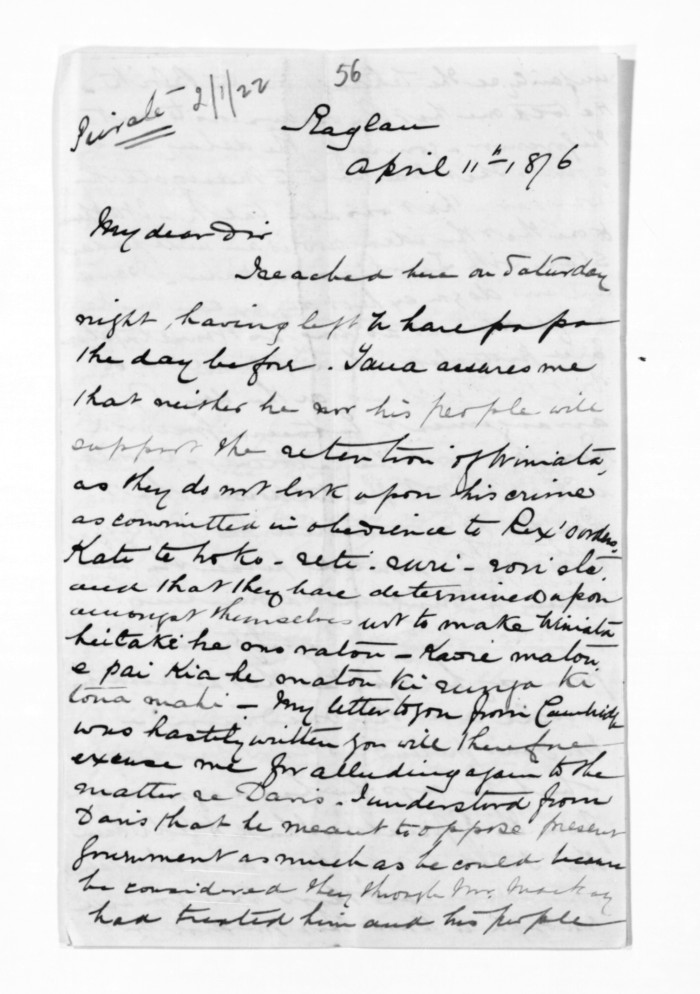 56
Private 2/1/22
Raglan
April 11th 1876
My dear Sir
I reached here on Saturday
night, having left Wharepapa
the day before. Tana assures me
that neither he nor his people will
support the retention of Winiata,
as they do not look upon his crime
as committed in obedience to Rex's orders,
Kati te hoko - reti - ruri - rori etc.
and that they have determined upon
amongst themselves not to make Winiata
hei take he mo ratou - Kaore matou
e pai kia he matou ki runga ki
tona mahi - My letter to you from Cambridge
was hastily written you will therefore
excuse me for alluding again to the
matter re Davis. I understood from
Davis that he meant to oppose present
Government as much as he could because
he considered they through Mr. Mackay
had treated him and his people